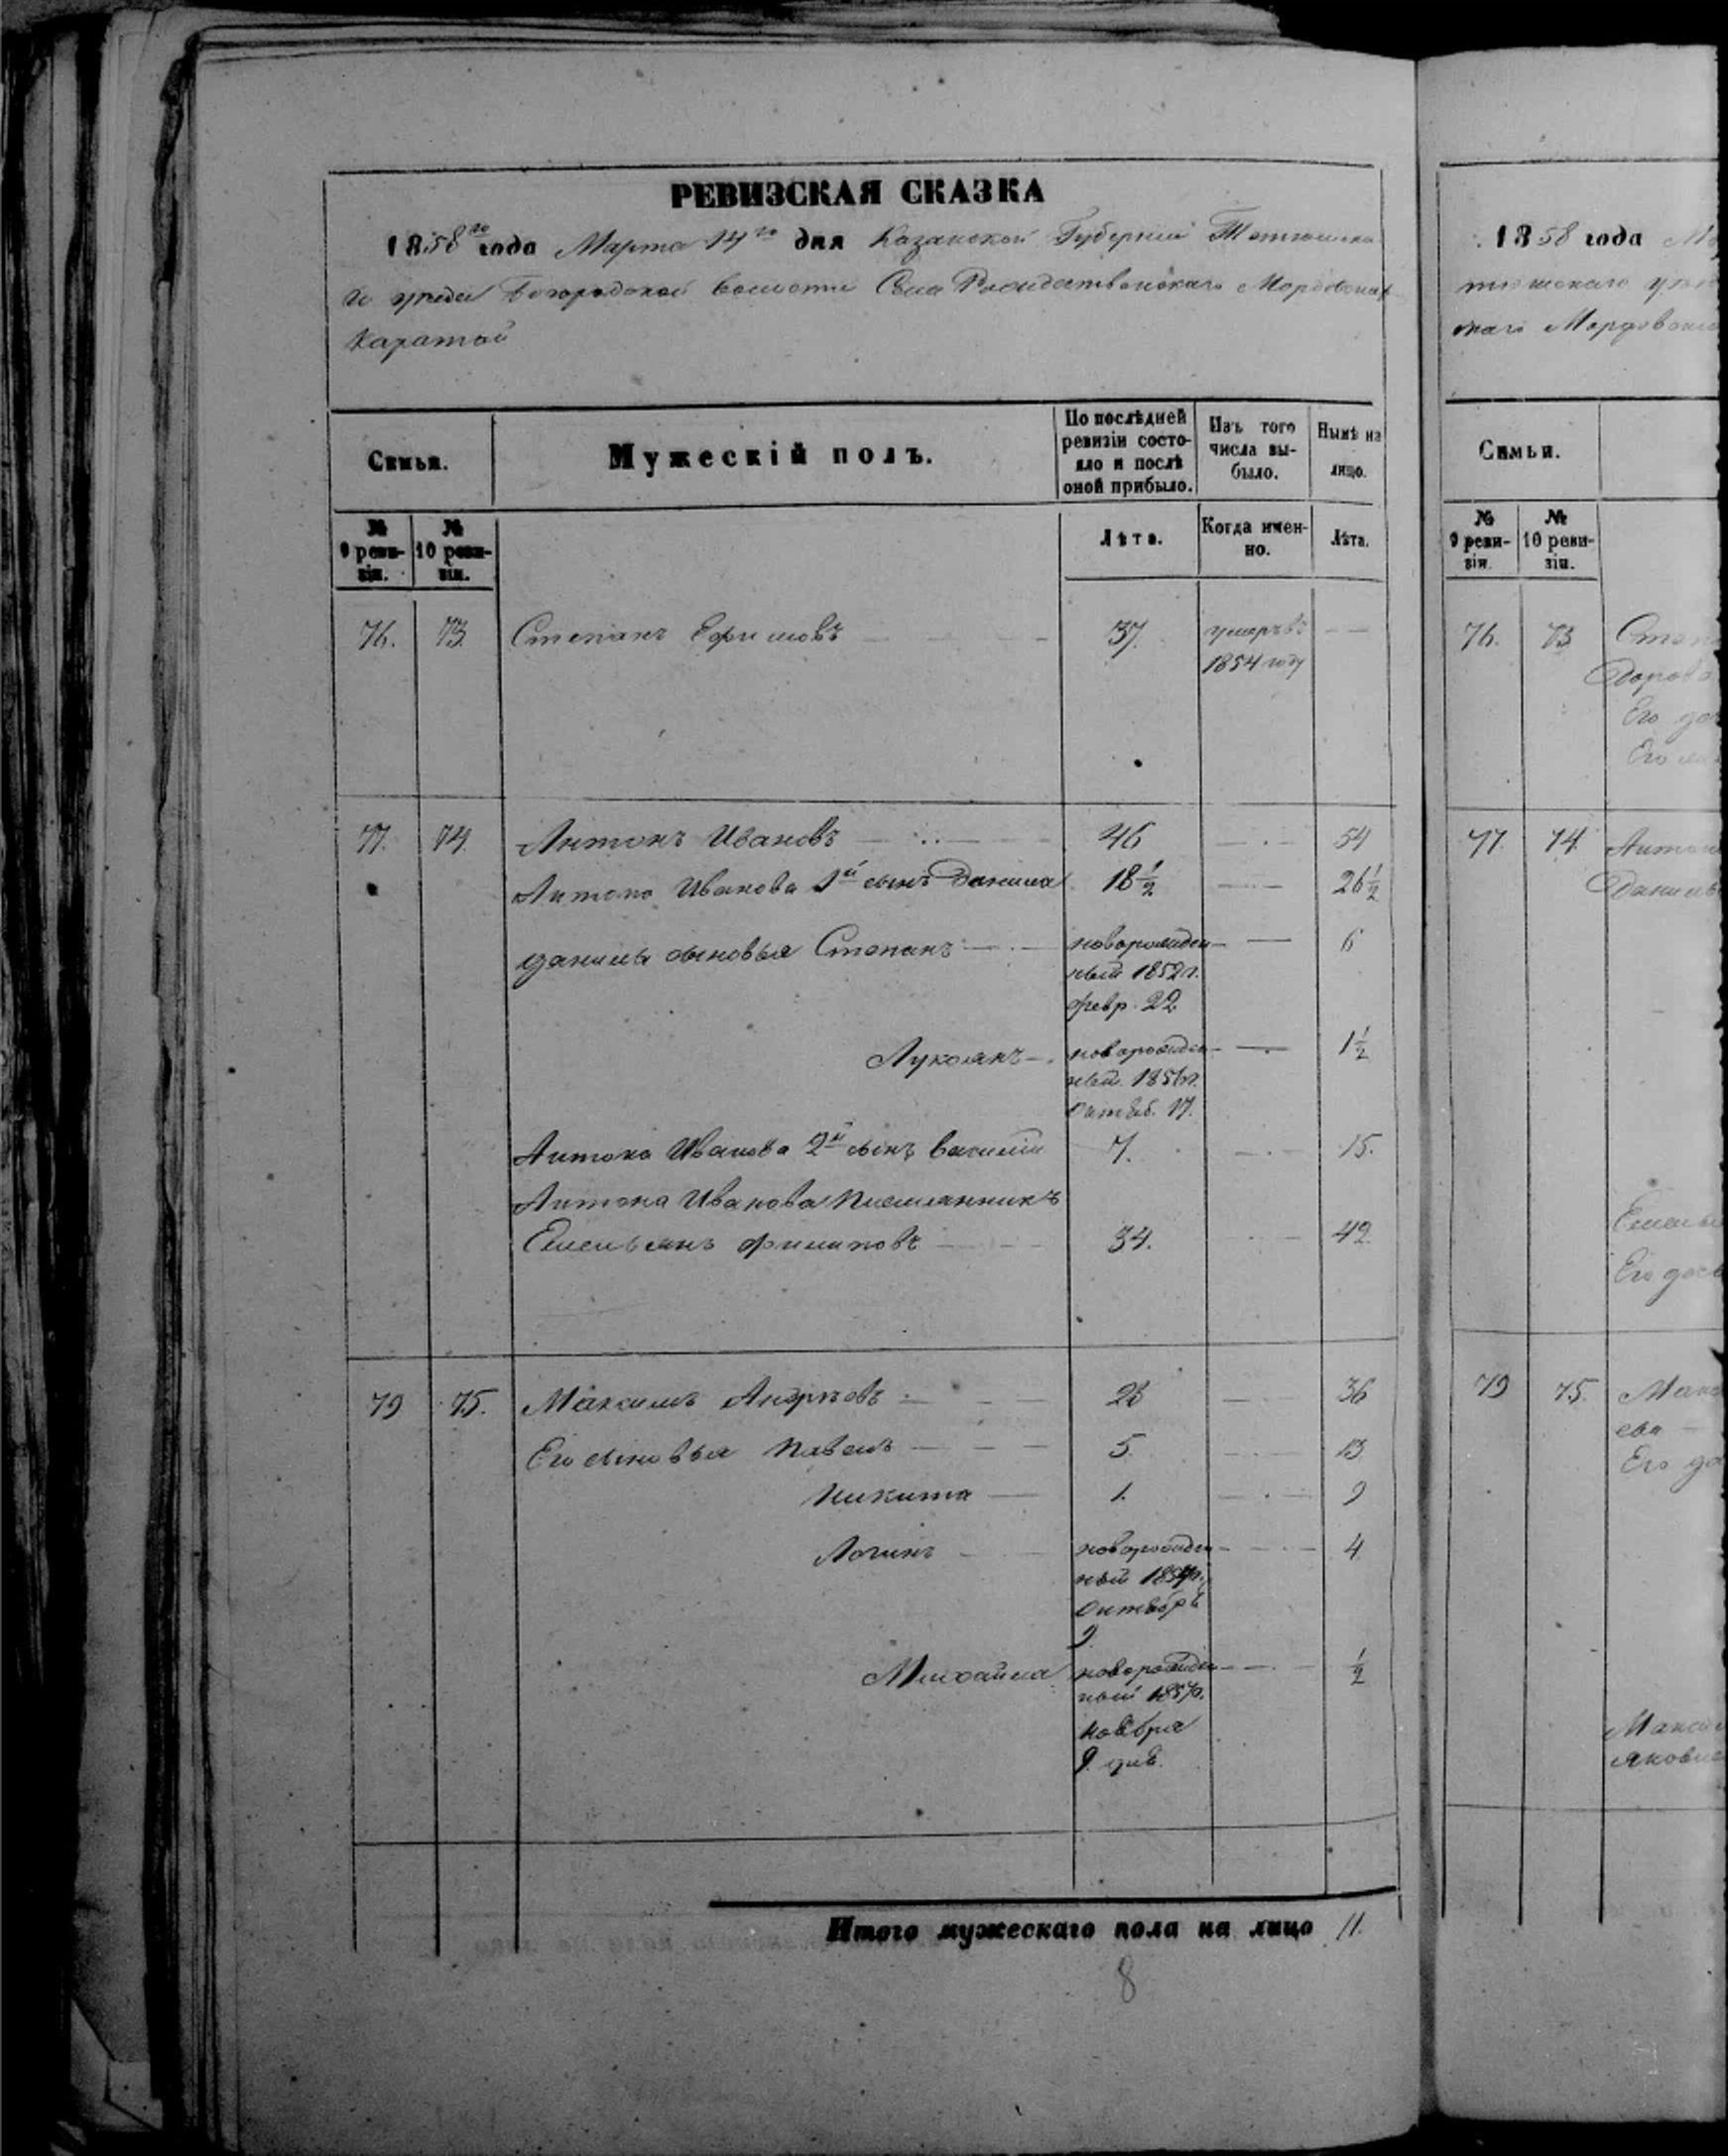 РЕВИЗСКАЯ СКАЗКА
1858го года Марта 14го дня Казанской Губерніи Тетюшска
го уезда Богородской волости Села Рождественскаго Мордовска
Каратай
Семьи. Мужескій полъ. По послѣдней ревизіи состояло и послѣ оной прибыло. Изъ того числа выбыло. Нынѣ на лицо.
№ 9 ревизіи. № 10 ревизіи. Лѣта. Когда именно. Лѣта.
76. 73. Степанъ Ефимовъ 37. умеръ въ
1854 году
77. 74. Антонъ Ивановъ 46 54
Антона Иванова 1й сынъ Данила 18 1/2 26 1/2
Данилы сыновья Степанъ новорожден 6
ный 1852 г.
февр. 22
Лукоянъ новорожден 1 1/2
ный 1856 г.
Октяб. 17.
Антона Иванова 2й сынъ Василій 7. 15.
Антона Иванова племянникъ
Емельянъ Филиповъ 34. 42.
79 75. Максимъ Андрѣевъ 28 36
Его сыновья Павелъ 5. 13
Никита 1. 9
Логинъ новорожден 4
ный 1854 г.
Октябрь
9
Михайла новорожден 1/2
ный 1857 г.
Ноября
9 дня.
Итого мужескаго пола на лицо 11.
8
1858 года
Семьи.
№ 9 ревизіи. № 10 ревизіи.
76. 73
Его
Его
77. 74.
Его
79 75.
Его